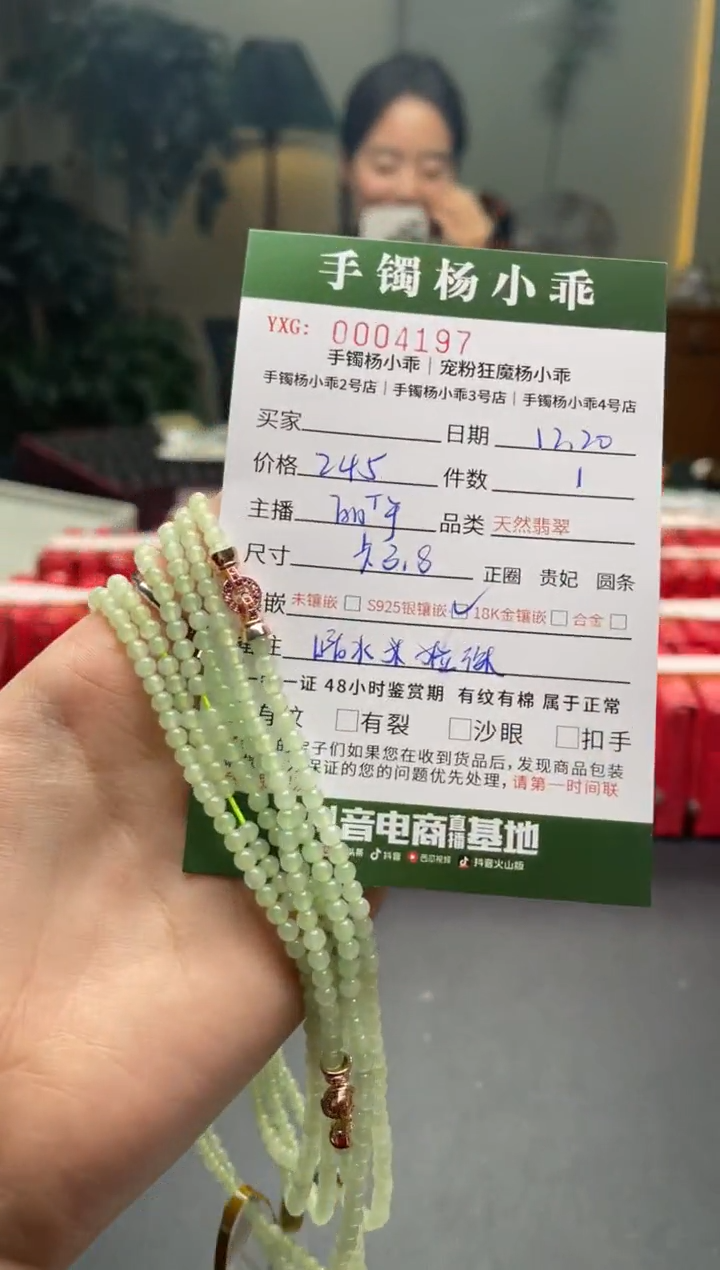 手镯杨小乖
YXG: 0004197
手镯杨小乖 | 宠粉狂魔杨小乖
手镯杨小乖2号店 | 手镯杨小乖3号店 | 手镯杨小乖4号店
买家 日期 12.20
价格 245 件数 1
主播 品类 天然翡翠
尺寸 3.8 正圈 贵妃 圆条
嵌 未镶嵌 S925银镶嵌 18K金镶嵌 合金
水米粒珠
一证 48小时鉴赏期 有纹有棉 属于正常
有纹 有裂 沙眼 扣手
子们如果您在收到货品后,发现商品包装
保证的您的问题优先处理,请第一时间联
音电商直播基地
头条 抖音 西瓜视频 抖音火山版